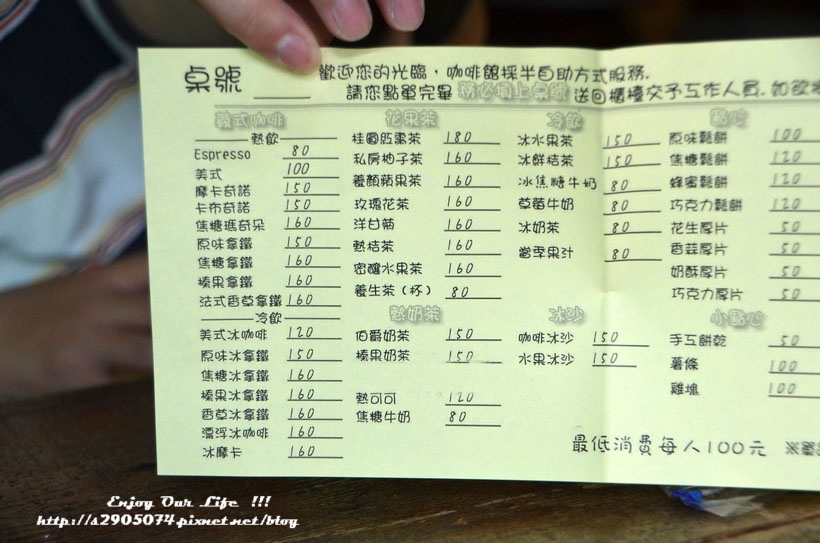 桌號
歡迎您的光臨，咖啡館採半自助方式服務.
請您點單完畢 務必填上桌號 送回櫃檯交予工作人員.如欲
義式咖啡
熱飲
Espresso 80
美式 100
摩卡奇諾 150
卡布奇諾 150
焦糖瑪奇朵 160
原味拿鐵 150
焦糖拿鐵 160
榛果拿鐵 160
法式香草拿鐵 160
冷飲
美式冰咖啡 120
原味冰拿鐵 150
焦糖冰拿鐵 160
榛果冰拿鐵 160
香草冰拿鐵 160
漂浮冰咖啡 160
冰摩卡 160
花果茶
桂圓紅棗茶 180
私房柚子茶 160
養顏蘋果茶 160
玫瑰花茶 160
洋甘菊 160
熱桔茶 160
密釀水果茶 160
養生茶（杯） 80
熱奶茶
伯爵奶茶 150
榛果奶茶 150
熱可可 120
焦糖牛奶 80
冷飲
冰水果茶 150
冰鮮桔茶 150
冰焦糖牛奶 80
草莓牛奶 80
冰奶茶 80
當季果汁 80
冰沙
咖啡冰沙 150
水果冰沙 150
點心
原味鬆餅 100
焦糖鬆餅 120
蜂蜜鬆餅 120
巧克力鬆餅 120
花生厚片 50
香蒜厚片 50
奶酥厚片 50
巧克力厚片 50
小點心
手工餅乾 50
薯條 100
雞塊 100
最低消費每人100元 ※
Enjoy Our Life !!!
http://s2905074.pixnet.net/blog